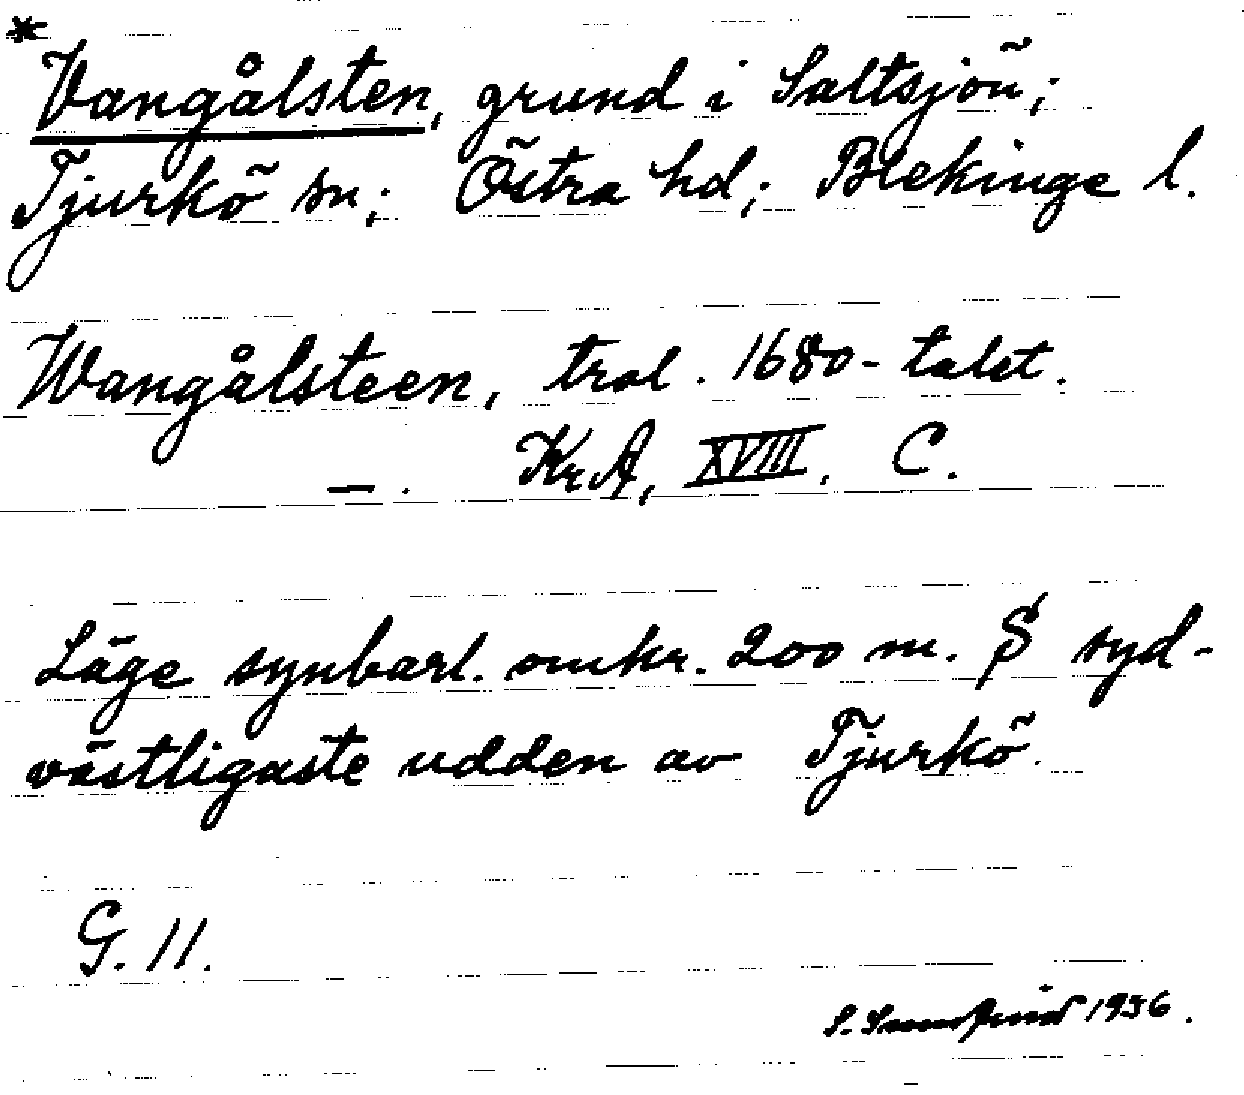 *
Vangålsten, grund i Saltsjön;
Tjurkö sn; Östra hd; Blekinge l.
Wangålsteen, trol. 1680-talet.
—. Kr.A, XVIII. C.
Läge synbarl. omkr. 200 m. S syd-
västligaste udden av Tjurkö.
G. 11.
S. 1936.